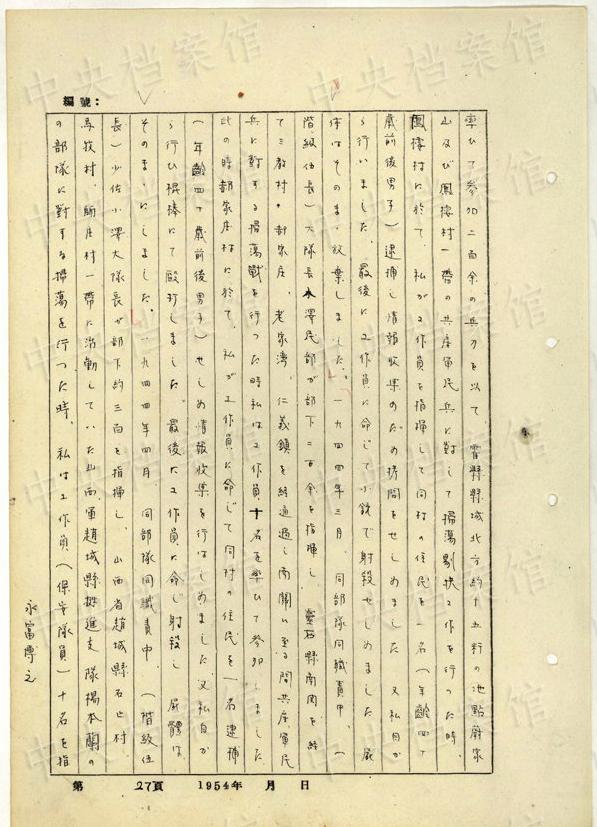 編號：
率ひて参加二百余の兵力を以て 霍縣縣城北方約十五粁の
山及び鳳楼村一帯の共産軍民兵に対して掃荡剔抉工作を行った時、
鳳楼村に於て、私が工作員を指揮して同村の住民を一名（年齢四十
歳前後男子）逮捕し情報収集のため拷問をせしめました 又私自か
ら行いました。最後に工作員に命じて小銃で射殺せしめました 屍
体はそのまゝ放棄しました、一九四四年三月、同部隊同職責中、（
階級伍長）大隊長 澤民部が部下二百余を指揮し 霊石縣南関を経
て三教村・郜家庄、老家湾、仁義鎮を経過し南関に至る間共産軍民
兵に対する掃荡戰を行った時私は工作員十名を率ひて参加しました
此の時郜家庄村に於て、私が工作員に命じて同村の住民を一名逮捕
（年齢四十歳前後男子）せしめ情報收集を行はしめました 又私自か
ら行ひ棍棒にて殴打しました 最後は工作員に命じ射殺し 屍體は
そのまゝにしました。一九四四年四月、同部隊同職責中、（階級伍
長）少佐小澤大隊長が部下約三百を指揮し、山西省趙城縣石止村、
馬牧村、師庄村一帯に活動していた山西軍趙城縣挺進支隊楊本蘭の
の部隊に対する掃荡を行った時、私は工作員（保安隊員）十名を指
永富博之
第 27頁 1954年 月 日
中央档案馆